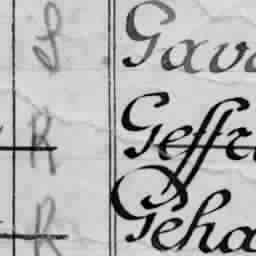 S Gava
R Geffre
R Geha